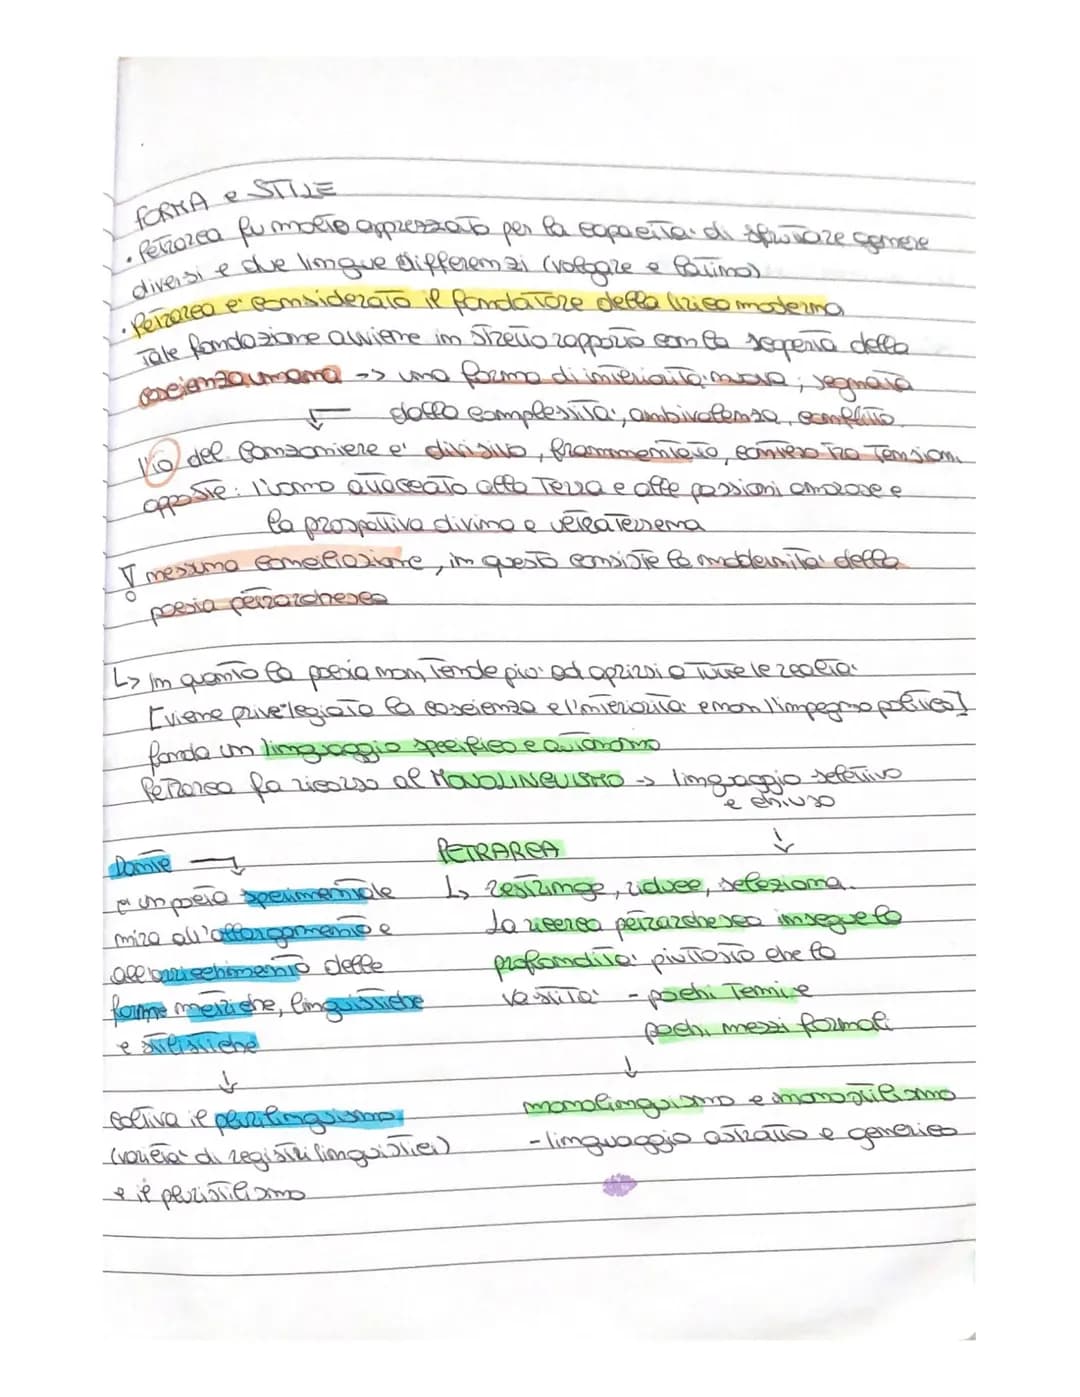 FORMA e STILE
• Petrarca fu molto apprezzato per la capacità di sfruttare genere
diversi e due lingue differenzi (volgare e latino)
• Petrarca e' considerato il fondatore della lirica moderna
Tale fondazione avviene in stretto rapporto con la scoperta della
coscienza umana -> una forma di interiorità nuova, segnata
dalla complessità, ambivalenza, conflitto
l'io del Canzoniere e' divisivo, frammentato, conteso tra tensioni
opposte: l'uomo attaccato alla Terra e alle passioni amorose e
la prospettiva divina e ultraterrena
! nessuna conciliazione, in questo consiste la modernità della
poesia petrarchesca
↳ In quanto la poesia non tende piu' ad aprirsi a tutte le realtà
[viene privelegiato la coscienza e l'interiorità e non l'impegno politico]
fonda un linguaggio specifico e autonomo
Petrarca fa ricorso al MONOLINGUISMO -> linguaggio selettivo
e chiuso
Dante
è un poeta sperimentale
mira all'allargamento e
all'arricchimento delle
forme metriche, linguistiche
e stilistiche
↓
coltiva il plurilinguismo
(varietà di registri linguistici)
e il pluristilismo
PETRARCA
↳ restringe, riduce, seleziona.
La ricerca petrarchesca insegue la
profondità piuttosto che la
vastità - pochi temi e
pochi mezzi formali
↓
monolinguismo e monostilismo
- linguaggio astratto e generico